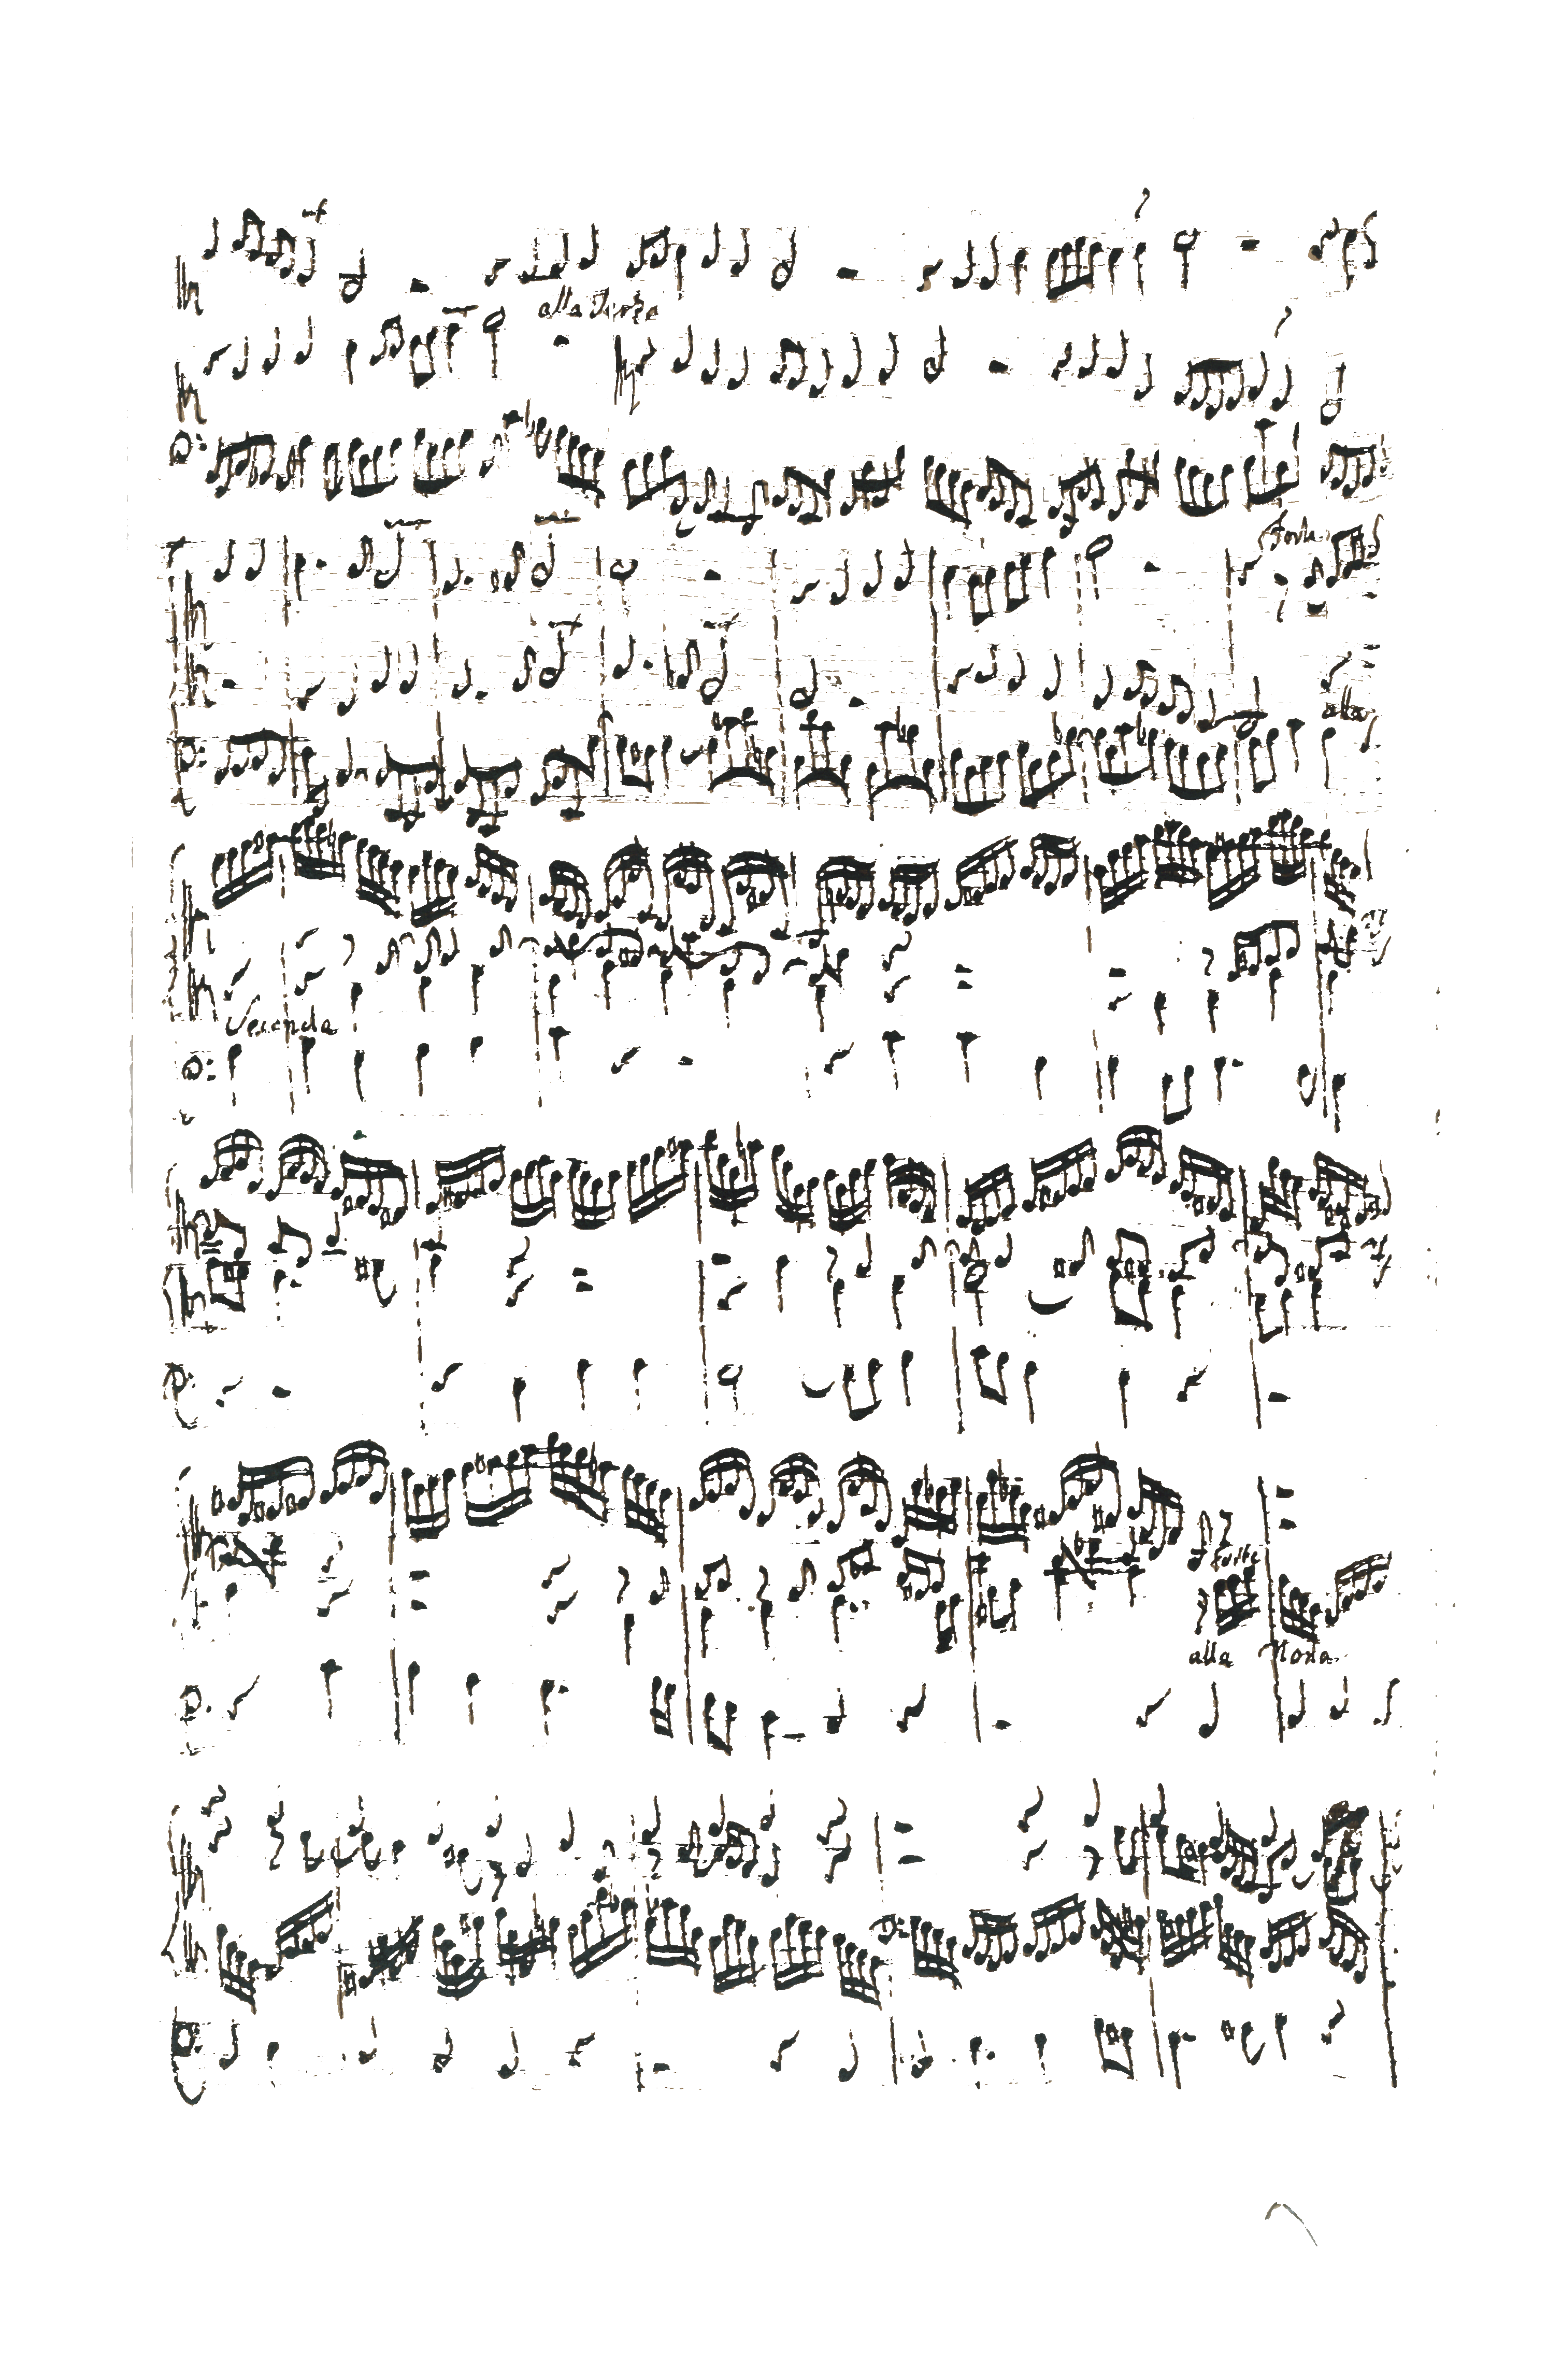 alla Terza
forte
alla
Seconda
forte
alla Nona.